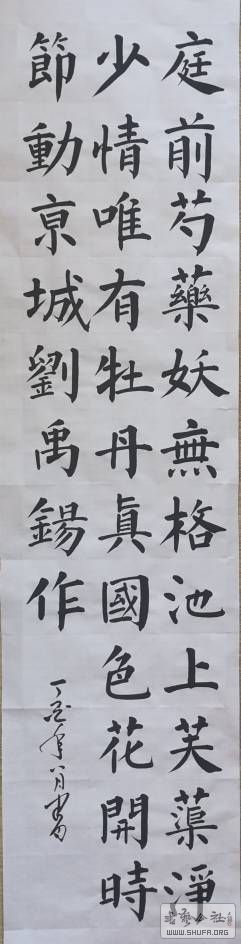 庭前芍藥妖無格池上芙蕖淨
少情唯有牡丹眞國色花開時
節動亰城劉禹錫作
丁亥年八月書
WWW.SHUFA.ORG